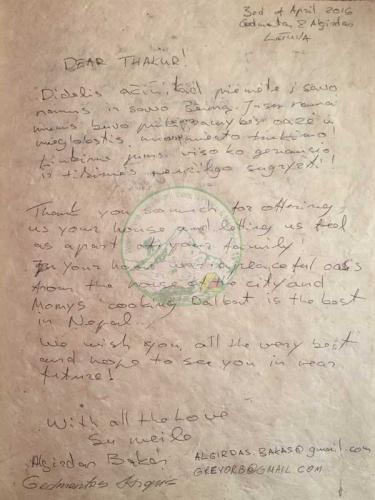 3rd of April 2016
Gedmantas & Algirdas
LATVIJA
DEAR THAKUR!
Didelis ačiū, kad priėmėte į savo
namus ir savo šeimą. Jūsų namai
mums buvo
jums viso ko geriausio
ir tikimės sugrįžti!
Thank you so much for offering
us your house and letting us feel
as apart of your family!
your home was a peaceful oasis
from the noise of the city and
Momys cooking Dalbat is the best
in Nepal...
We wish you, all the very best
and hope to see you in near
future!
With all the Love
Su meile
Algirdas Bakas
Gedmantas
ALGIRDAS.BAKAS@gmail.com
GREYORB@GMAIL.COM